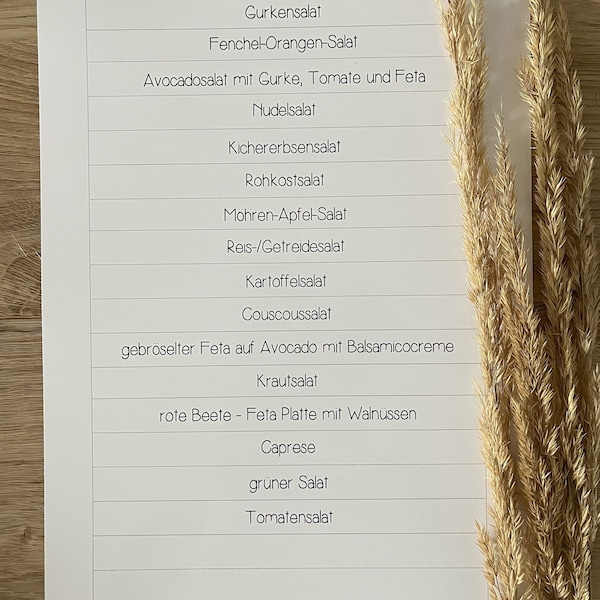 Gurkensalat
Fenchel-Orangen-Salat
Avocadosalat mit Gurke, Tomate und Feta
Nudelsalat
Kichererbsensalat
Rohkostsalat
Möhren-Apfel-Salat
Reis-/Getreidesalat
Kartoffelsalat
Couscoussalat
gebröselter Feta auf Avocado mit Balsamicocreme
Krautsalat
rote Beete - Feta Platte mit Walnüssen
Caprese
grüner Salat
Tomatensalat